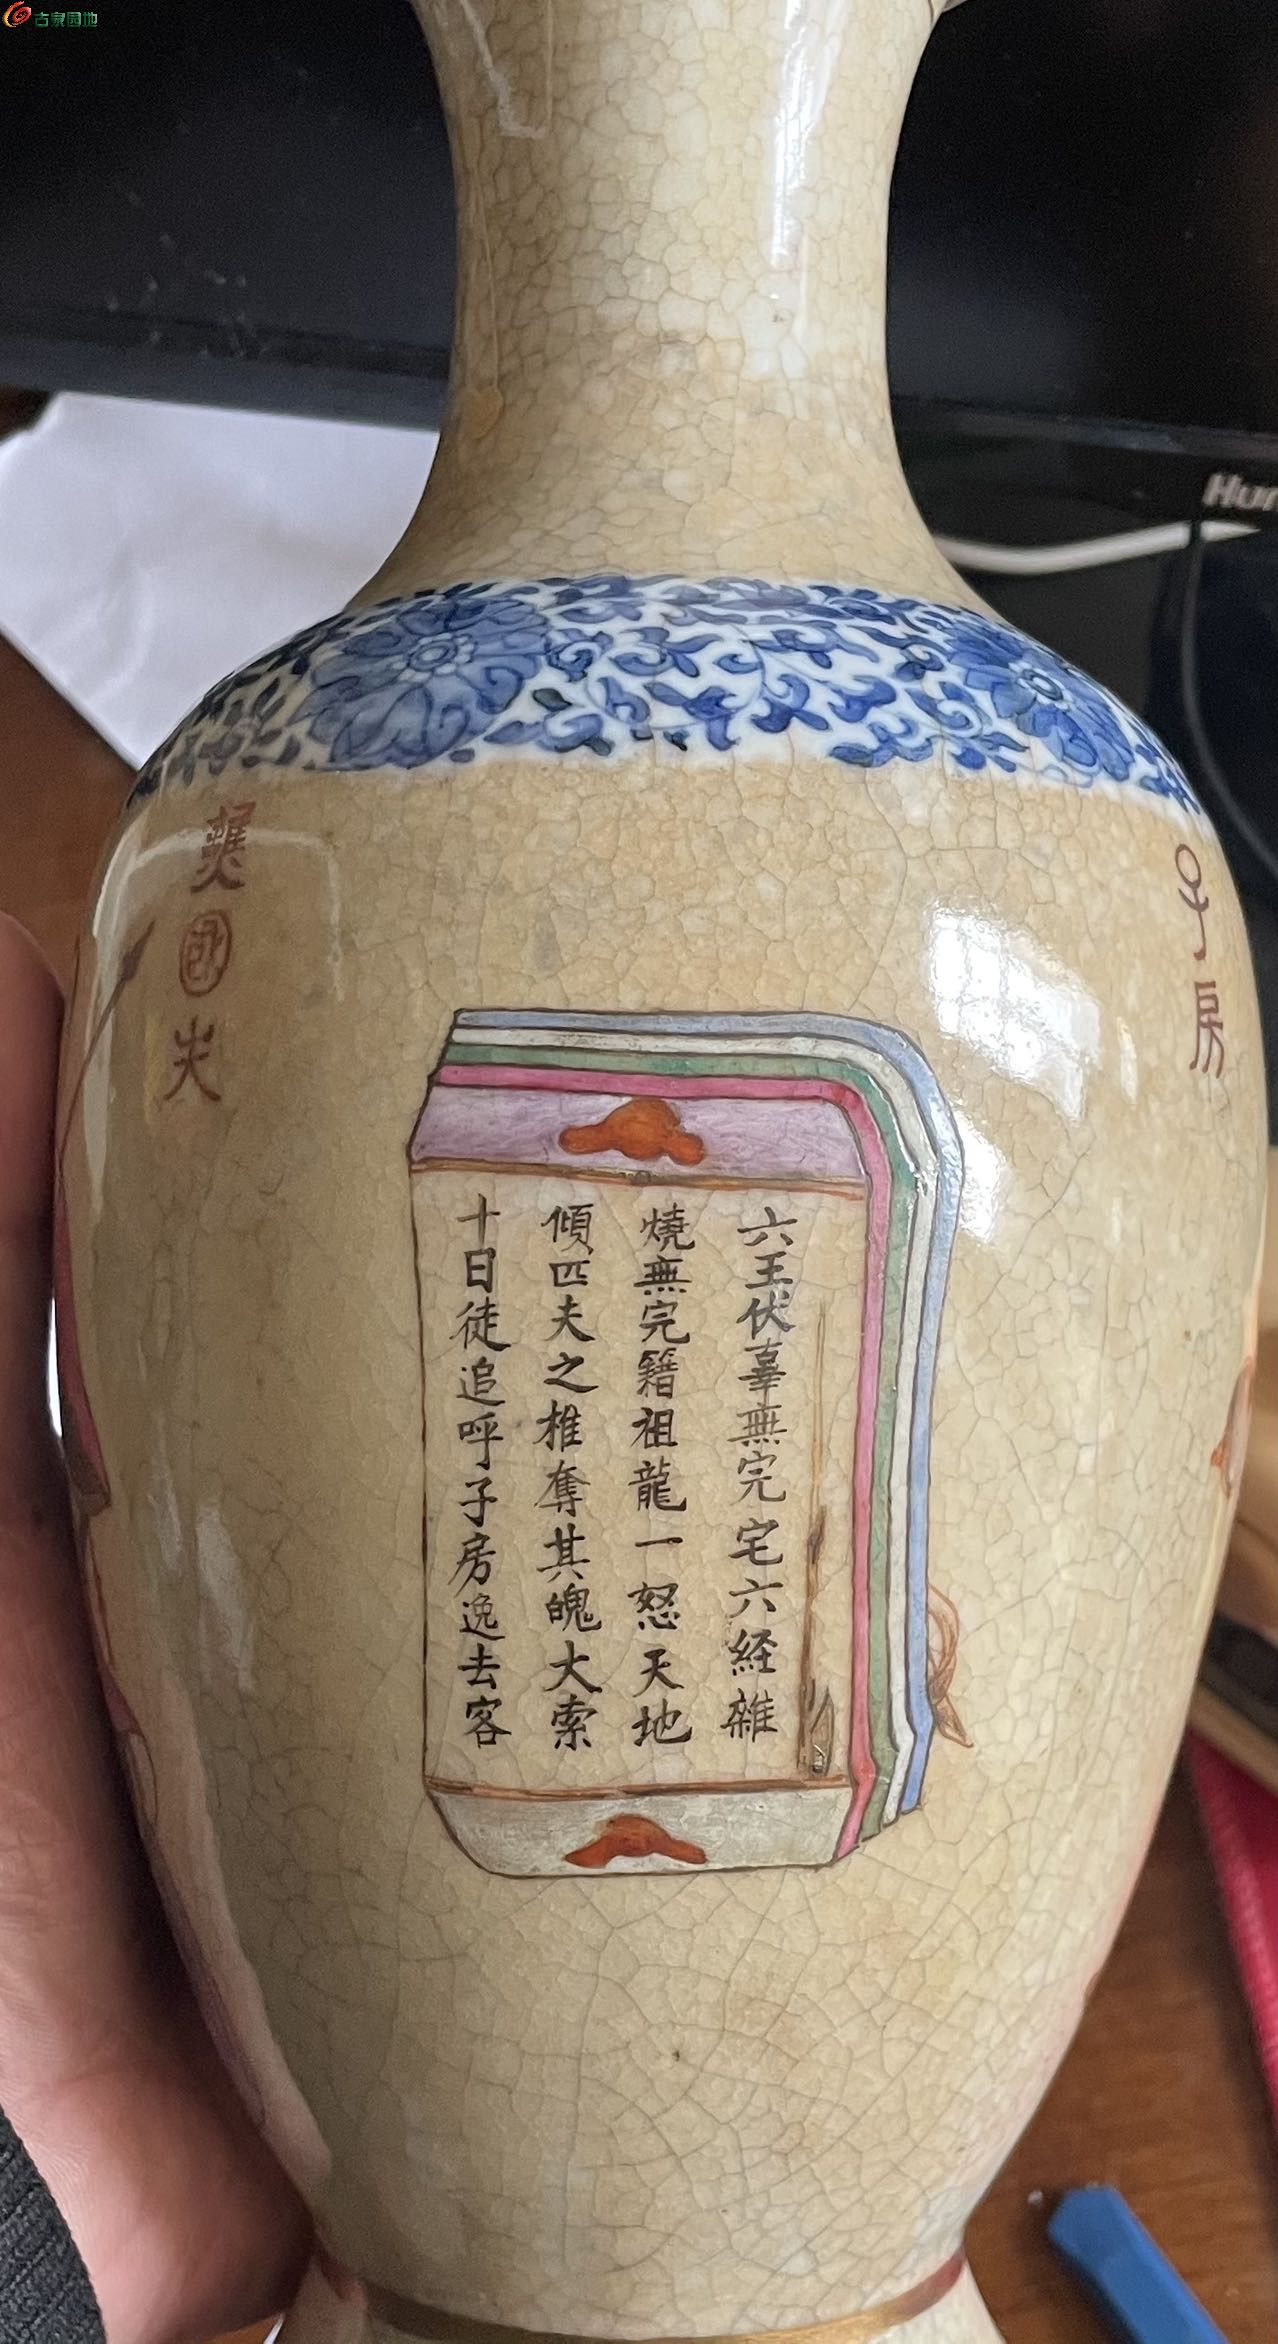 古泉园地
Hun
子房
六王伏辜無完宅六経雜
燒無完籍祖龍一怒天地
傾匹夫之椎奪其魄大索
十日徒追呼子房逸去客
國夫